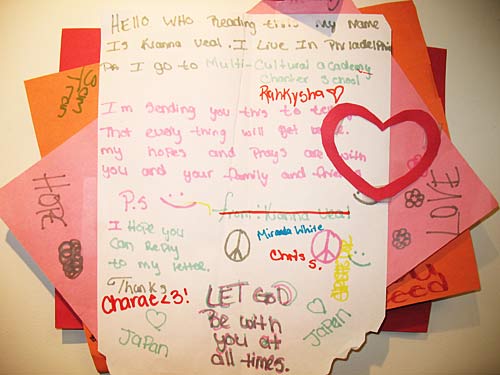 HELLO WHO Reading this My Name
Is Kianna Veal. I Live In Philadelphia
PA I go to Multi-Cultural academy
Charter School
Rahkysha
I'm sending you this to tell you
That every thing will get
my hopes and Prays are with
you and your family and friends
P.s
from: Kianna Veal
I Hope you
Can Reply
to my letter.
Miranda White
Chris
S.
Thanks
LET GOD
Be with
you at
all times.
JaPan
JaPan
HOPE
LOVE